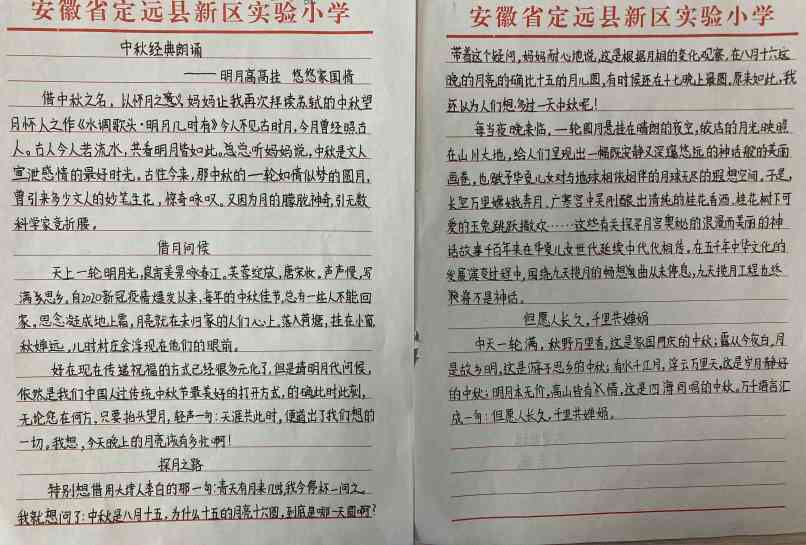 安徽省定远县新区实验小学
中秋经典朗诵
——明月高高挂 悠悠家国情
借中秋之名，以怀月之意义妈妈让我再次拜读苏轼的中秋望
月怀人之作《水调歌头·明月几时有》今人不见古时月，今月曾经照古
人。古人今人若流水，共看明月皆如此。总总听妈妈说，中秋是文人
宣泄感情的最好时光。古往今来，那中秋的一轮如情似梦的圆月，
曾引来多少文人的妙笔生花，惊奇咏叹。又因为月的朦胧神奇，引无数
科学家竞折腰。
借月问候
天上一轮明月光，良宵美景咏春江。芙蓉绽放，唐宋秋，声声慢，写
满乡思乡，自2020新冠疫情爆发以来，每年的中秋佳节，总有一些人不能回
家，思念凝成地上霜，月亮就在未归家的人们心上。落入荷塘，挂在小窗，
秋婵远，儿时村庄会浮现在他们的眼前。
好在现在传递祝福的方式已经很多元化了，但是请明月代问候，
依然是我们中国人过传统中秋节最美好的打开方式，的确此时此刻，
无论您在何方，只要抬头望月，轻声一句：天涯共此时，便道出了我们想的
一切。我想，今天晚上的月亮该有多忙啊！
探月之路
特别想借用大诗人李白的那一句：青天有月来几时，我今停杯一问之。
我就想问了：中秋是八月十五，为什么十五的月亮十六圆，到底是哪一天圆啊？
安徽省定远县新区实验小学
带着这个疑问，妈妈耐心地说，这是根据月相的变化观察，在八月十六这
晚的月亮的确比十五的月儿圆，有时候还在十七晚上最圆，原来如此，我
还以为人们想多过一天中秋呢！
每当夜晚来临，一轮圆月悬挂在晴朗的夜空，皎洁的月光映照
在山川大地，给人们呈现出一幅既安静又深邃悠远的神话般的美丽
画卷，也赋予华夏儿女对与地球相依相伴的月球无尽的遐想空间。于是，
长空万里嫦娥奔月，广寒宫中吴刚酿出清纯的桂花香酒，桂花树下可
爱的玉兔跳跃撒欢……这些有关探寻月宫奥秘的浪漫而美丽的神
话故事千百年来在华夏儿女世代延续中代代相传，在五千年中华文化的
发展演变过程中，围绕九天揽月的畅想曲从未停息，九天揽月工程也终
将不是神话。
但愿人长久，千里共婵娟
中天一轮满，秋野万里香，这是家国同庆的中秋；露从今夜白，月
是故乡明，这是游子思乡的中秋；春水千江月，浮云万里天，这是岁月静好
的中秋；明月本无价，高山皆有情，这是四海同唱的中秋。万千语言汇
成一句：但愿人长久，千里共婵娟。